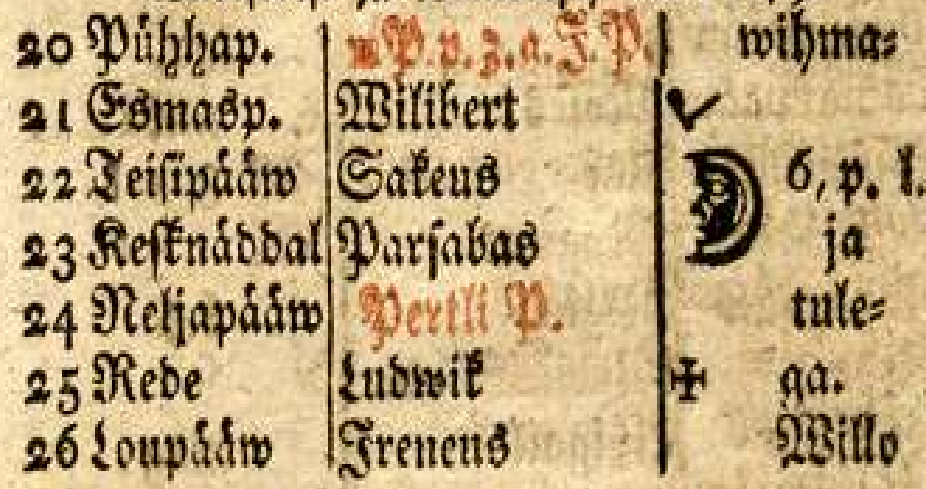 20 Pühhap. wP.p.z.a.J.P. wihma⸗
21 Esmasp. Wilibert
22 Teisipääw Sakeus 6, p. l.
23 Kesknäddal Parsabas ja
24 Neljapääw Pertli P. tule⸗
25 Rede Ludwik ✠ ga.
26 Loupääw Ireneus Willo